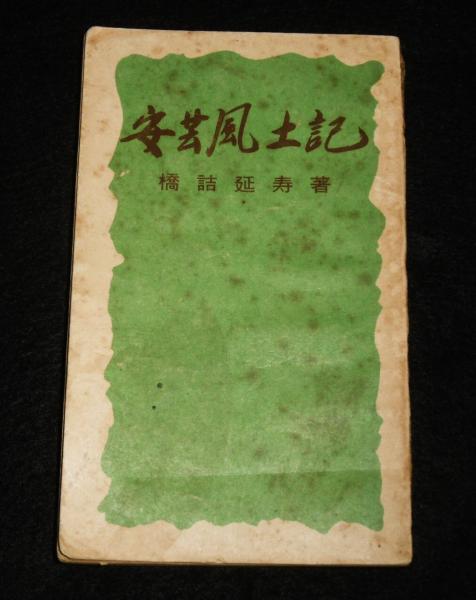 安芸風土記
橋詰延寿著